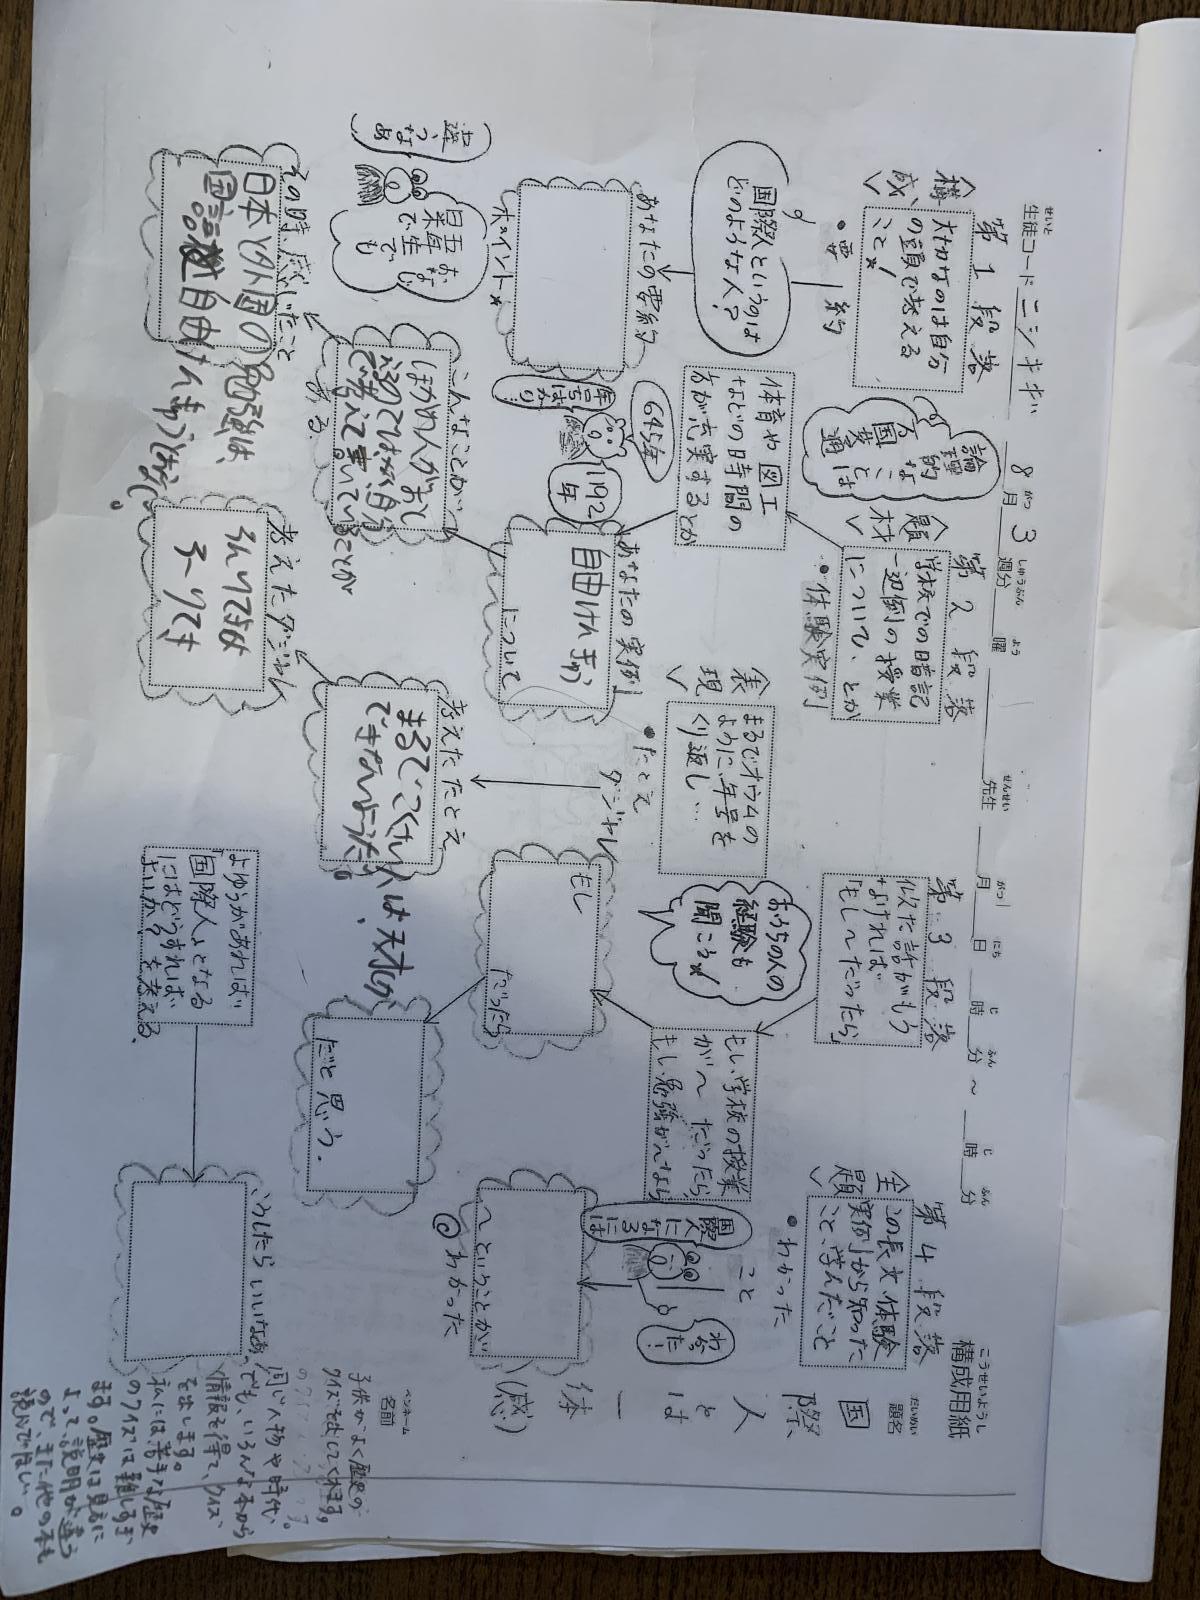 構成用紙
こうせいようし
生徒コード ニシキギ 8月 3週分 曜 先生 月 日 時 分 ～ 時 分
せいと がつ しゅうぶん よう せんせい がつ にち じ ふん じ ふん
題名
だいめい
国際人とは一体(感)
名前
ペンネーム
第1段落
<構成>
大切なのは自分
の頭で考える
こと☆
●要約
国際人というのは
どのような人？
あなたの要約
ポイント☆
年号は
ばかり！
逆
なあ
第2段落
<題材>
学校での暗記
一辺倒の授業
について、とか
●体験実例
論理
的な
こと
万国共通
とは
体育や図工
などの時間の
方が充実するとか
645年
1192年
あなたの実例
自由けんきゅう
について
こんなことが
ほかの人がおし
えるのではなく自分
で考えて書いていることが
ある。
その時、感じたこと
日本と外国の勉強は、
国語 自由けんきゅうじゃない。
第3段落
似た話がもう
なければ
「もし～だったら」
<表現>
まるでオウムの
ように年号を
くり返し…
●たとえ
ダジャレ
考えたたとえ
まるでいっくんは天才が
できないようだ。
考えたダジャレ
おうちの人の
経験も
聞こう☆
もし、学校の授業
が～だったら
もし勉強が～なら
もし
だったら
だと思う.
第4段落
<主題>
この長文、体験
実例から知った
こと、学んだこと
●わかった
こと
国際
人に
なる
には
わか
った！
～ということが
@わかった
よゆうがあれば
「国際人」となる
にはどうすれば
よいか？を考える.
こうしたらいいなあ。
子供がよく歴史の
クイズを出してくれます。
同じ人物や時代
でも、いろんな本から
情報を得て、クイズ
を出します。
私には苦手な歴史
のクイズは難しすぎ
ます。歴史は見方に
よって説明が違う
ので、また他の本も
読んでほしい。